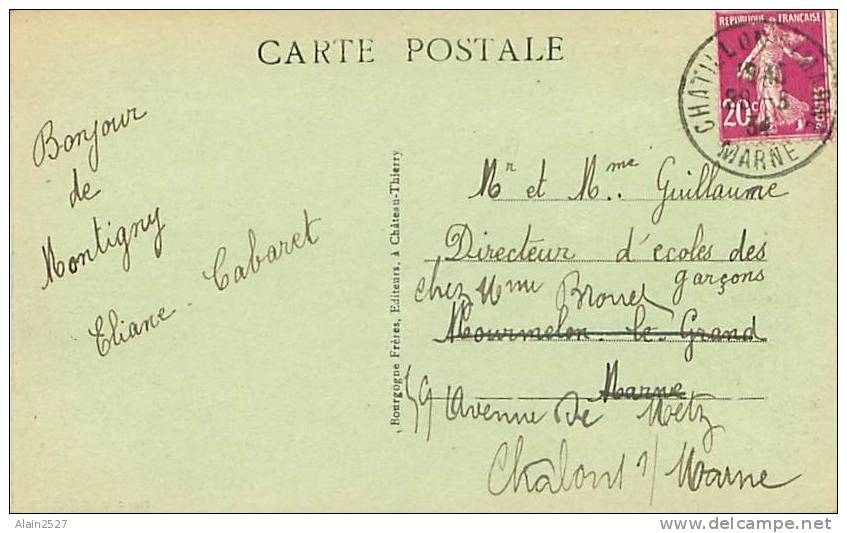 CARTE POSTALE
RÉPUBLIQUE FRANÇAISE
20c
POSTES
CHATILLON
MARNE
Bonjour
de
Montigny
Eliane Cabaret
Bourgogne Frères, Editeurs, à Château-Thierry
Mr et Mme Guillaume
Directeur d'écoles des
garçons
chez Mme
Mourmelon-le-Grand
Marne
59 Avenue de Metz
Chalons s/ Marne
Alain2527
delcampe.net